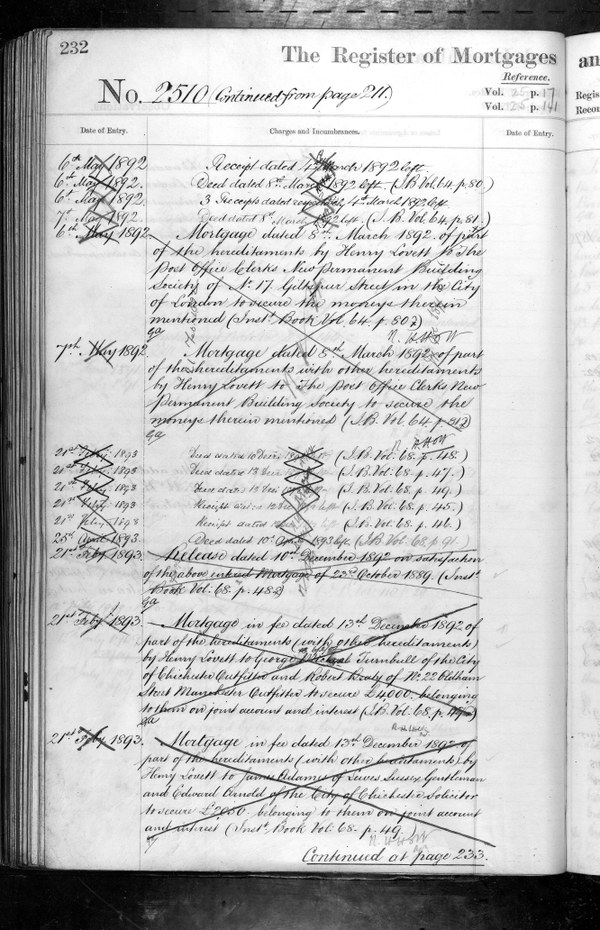 232
The Register of Mortgages
an
Reference.
No. 2510 (Continued from page 211.)
Vol. 25 p. 17
Vol. p. 141
Regis
Recor
Date of Entry. Charges and Incumbrances. Date of Entry.
6th May 1892 Receipt dated March 1892 left
6th May 1892. Deed dated 8th March 1892 left. (I.B. Vol. 64. p. 80.)
6th May 1892. 3 Receipts dated respectively 4th March 1892 left
7th May 1892. Deed dated 8th March 1892 left. (I.B. Vol. 64. p. 81.)
6th May 1892 Mortgage dated 8th March 1892 of part
of the hereditaments by Henry Lovett to The
Post Office Clerks New Permanent Building
Society of No. 17 Giltspur Street in the City
of London to secure the moneys therein
mentioned (Inst. Book Vol. 64. p. 80.)
7th May 1892 Mortgage dated 8th March 1892 of part
of the hereditaments with other hereditaments
by Henry Lovett to The Post Office Clerks New
Permanent Building Society to secure the
moneys therein mentioned (I.B. Vol. 64. p. 81)
21st Feby. 1893 Deed dated 10 Decr. left (I.B. Vol. 68. p. 48.)
21st Feby. 1893 Deed dated 13 Decr. (I.B. Vol. 68. p. 47.)
21st Feby. 1893 Deed dated 13 Decr. (I.B. Vol. 68. p. 49.)
21st Feby. 1893 Receipt dated (I.B. Vol. 68. p. 45.)
21st Feby. 1893 Receipt dated (I.B. Vol. 68. p. 46.)
25th April 1893 Deed dated 10th April 1893 left (I.B. Vol. 68 p 91.)
21st Feby 1893. Release dated 10th December 1892 on satisfaction
of the above entered Mortgage of 23rd October 1889. (Inst.
Book Vol. 68. p. 48)
21st Feby 1893. Mortgage in fee dated 13th December 1892 of
part of the hereditaments (with other hereditaments)
by Henry Lovett to George Turnbull of the City
of Chichester Outfitter and Robert of No. 22 Oldham
Street Manchester Outfitter to secure £4000. belonging
to them on joint account and interest (I.B. Vol. 68. p. 47)
21st Feby. 1893. Mortgage in fee dated 13th December 1892 of
part of the hereditaments (with other hereditaments) by
Henry Lovett to James Adames of Lewes Sussex Gentleman
and Edward Arnold of the City of Chichester Solicitor
to secure £2050. belonging to them on joint account
and interest (Inst. Book Vol. 68. p. 49.)
Continued at page 233.